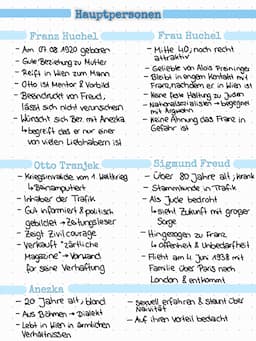 Hauptpersonen
Franz Huchel
- Am 07.08.1920 geboren
- Gute Beziehung zu Mutter
- Reift in Wien zum Mann
- Otto ist Mentor & Vorbild
- Beeindruckt von Freud,
lässt sich nicht verunsichern
- Wünscht sich Bez. mit Anezka
↳ begreift das er nur einer
von vielen Liebhabern ist
Frau Huchel
- Mitte 40, noch recht
attraktiv
- Geliebte von Alois Preininger
- Bleibt in engem Kontakt mit
Franz, nachdem er in Wien ist
- Keine feste Haltung zu Juden
- Nationalsozialisten → begegnet
mit Argwohn
- Keine Ahnung das Franz in
Gefahr ist
Otto Trsnjek
- Kriegsinvalide vom 1. Weltkrieg
↳ Beinamputiert
- Inhaber der Trafik
- Gut informiert & politisch
gebildet → Zeitungsleser
- Zeigt Zivilcourage
- Verkauft "zärtliche
Magazine" → Vorwand
für seine Verhaftung
Sigmund Freud
- Über 80 Jahre alt, krank
- Stammkunde in Trafik
- Als Jude bedroht
↳ sieht Zukunft mit großer
Sorge
- Hingezogen zu Franz
↳ Offenheit & Unbedarfheit
- Flieht am 4. Juni 1938 mit
Familie über Paris nach
London & entkommt
Anezka
- 20 Jahre alt, blond
- Aus Böhmen → Dialekt
- Lebt in Wien in ärmlichen
Verhältnissen
- sexuell erfahren & staunt über
Naivität
- Auf ihren Vorteil bedacht